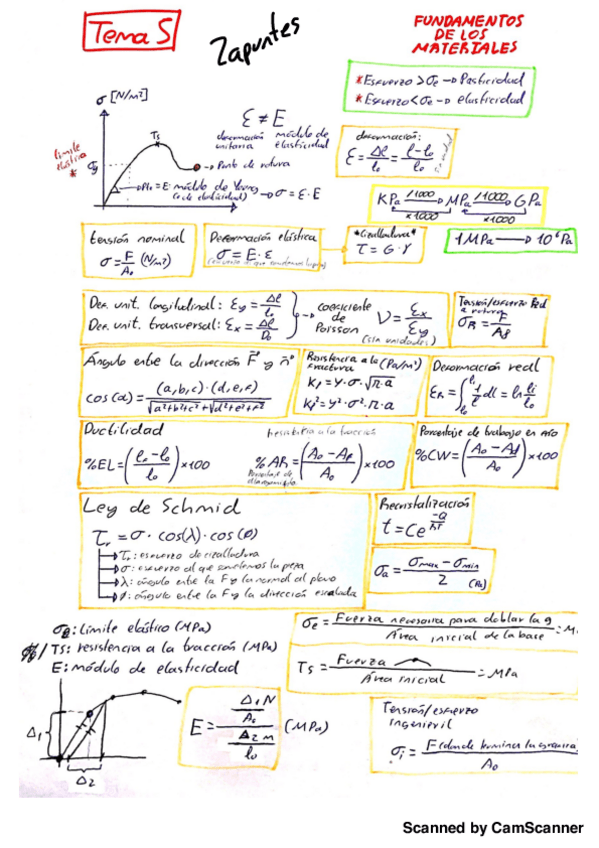 Tema 5
Zapuntes
FUNDAMENTOS
DE LOS
MATERIALES
*Esfuerzo > σe → Plasticidad
*Esfuerzo < σe → elasticidad
σ [N/m²]
Ts
límite
elástico
*
σy
→ Punto de rotura
ε ≠ E
deformación módulo de
unitaria elasticidad
→ σ = ε · E
deformación:
ε = Δl/l₀ = (l - l₀)/l₀
KPa /1000 → MPa /1000 → GPa
x1000 x1000
1 MPa → 10⁶ Pa
tensión nominal
σ = F/A₀ (N/m²)
Deformación elástica
σ = E · ε
*Cizalladura*
τ = G · γ
Def. unit. longitudinal: εy = Δl/l₀
Def. unit. transversal: εx = Δl/D₀
→ coeficiente
de
Poisson
ν = εx/εy
(sin unidades)
Tensión/esfuerzo Red
a rotura
σR = F/Af
Ángulo entre la dirección F y n
cos(α) = (a,b,c)·(d,e,f) / √a²+b²+c² + √d²+e²+f²
Resistencia a la fractura (Pa/m²)
K₁ = Y · σ · √π·a
K₁² = Y² · σ² · π · a
Deformación real
εR = ∫ 1/l dl = ln li/l₀
Ductilidad
%EL = ((lf - l₀)/l₀) x100
resistencia a la tracción
%AR = ((A₀ - Af)/A₀) x100
Porcentaje de trabajo en frío
%CW = ((A₀ - Ad)/A₀) x100
Ley de Schmid
τr = σ · cos(λ) · cos(φ)
→ τr: esfuerzo de cizalladura
→ σ: esfuerzo al que sometemos la pieza
→ λ: ángulo entre la F y la normal al plano
→ φ: ángulo entre la F y la dirección
Recristalización
t = C e^(-Q/RT)
σa = (σmax - σmin)/2 (Pa)
σe: Límite elástico (MPa)
/ Ts: resistencia a la tracción (MPa)
E: módulo de elasticidad
σe = Fuerza necesaria para doblar la / Área inicial de la base = M
Ts = Fuerza / Área inicial = MPa
Δ1
Δ2
E = (Δ1 N / A₀) / (Δ2 m / l₀) (MPa)
Tensión/esfuerzo
ingenieril
σi = F (donde termina la gráfica / A₀
Scanned by CamScanner